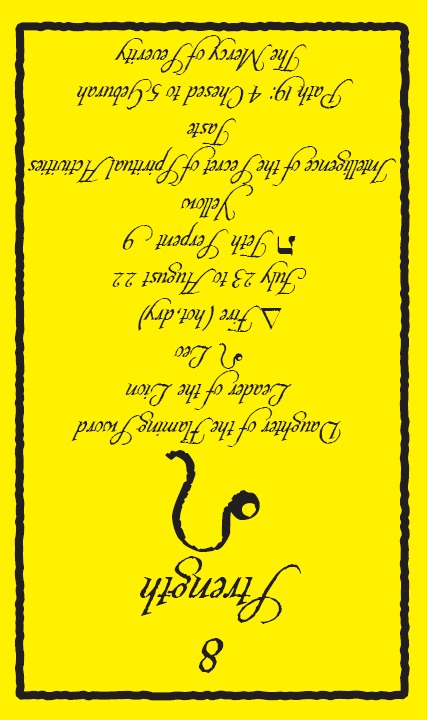 8
Strength
Daughter of the Flaming Sword
Leader of the Lion
♌ Leo
△ Fire (hot, dry)
July 23 to August 22
ט Teth Serpent 9
Yellow
Intelligence of the Secret of Spiritual Activities
Taste
Path 19: 4 Chesed to 5 Geburah
The Mercy of Severity